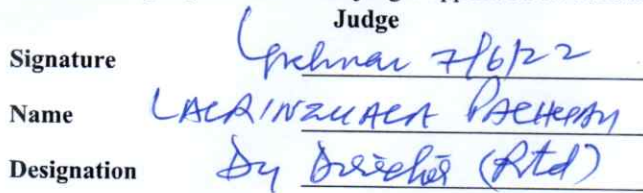 Judge
Signature 7/6/22
Name LALRINZUALA PACHUAU
Designation Dy Director (Rtd)